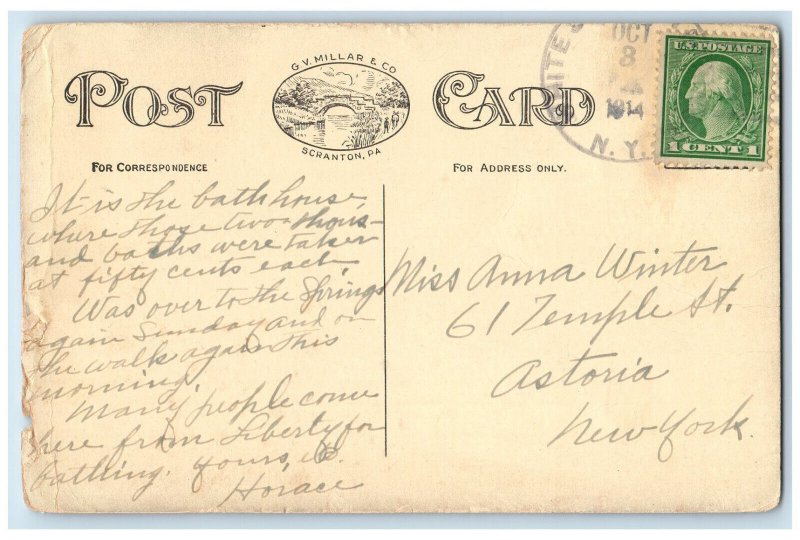 POST CARD
G.V. MILLAR & CO
SCRANTON, PA
FOR CORRESPONDENCE
FOR ADDRESS ONLY.
WHITE S
OCT
8
1914
N.Y.
U.S. POSTAGE
1 CENT 1
It is the bath house,
where those two thous-
and baths were taken
at fifty cents each.
Was over to the Springs
again Sunday and on
the walk again this
morning.
Many people come
here from Liberty for
bathing. Yours,
Horace
Miss Anna Winter
61 Temple St.
Astoria
New York.